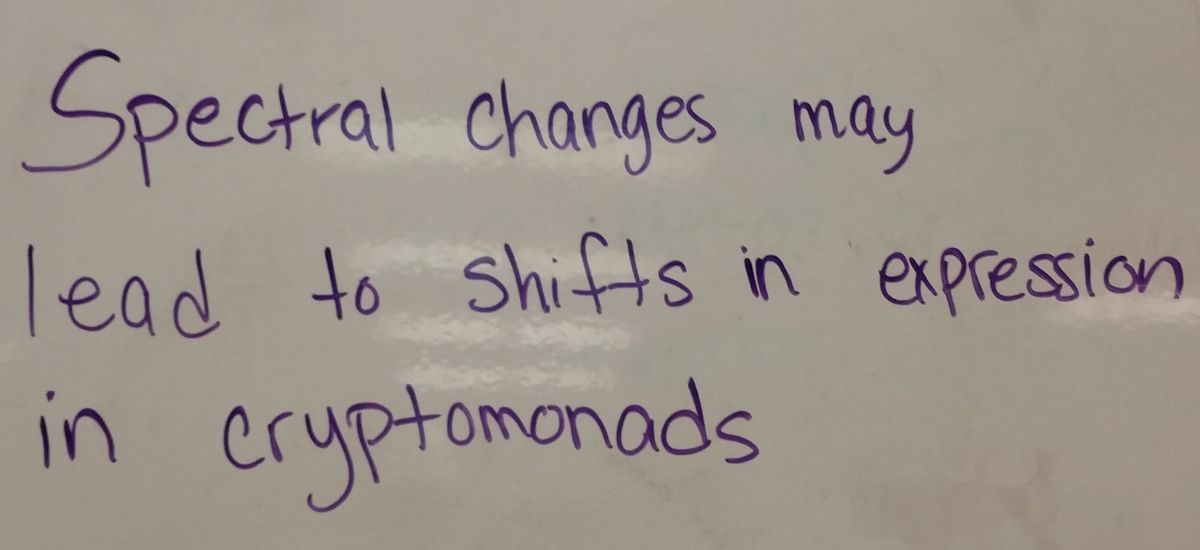 Spectral changes may
lead to shifts in expression
in cryptomonads